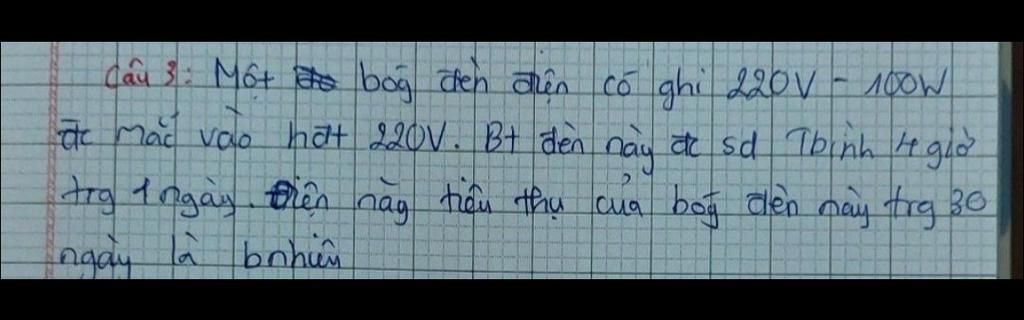 Câu 3: Một bóg đèn điện có ghi 220V - 100W
đc mắc vào hđt 220V. Bt đèn này đc sd Tbình 4 giờ
trg 1 ngày. Điện năg tiêu thụ của bóg đèn này trg 30
ngày là bnhiêu